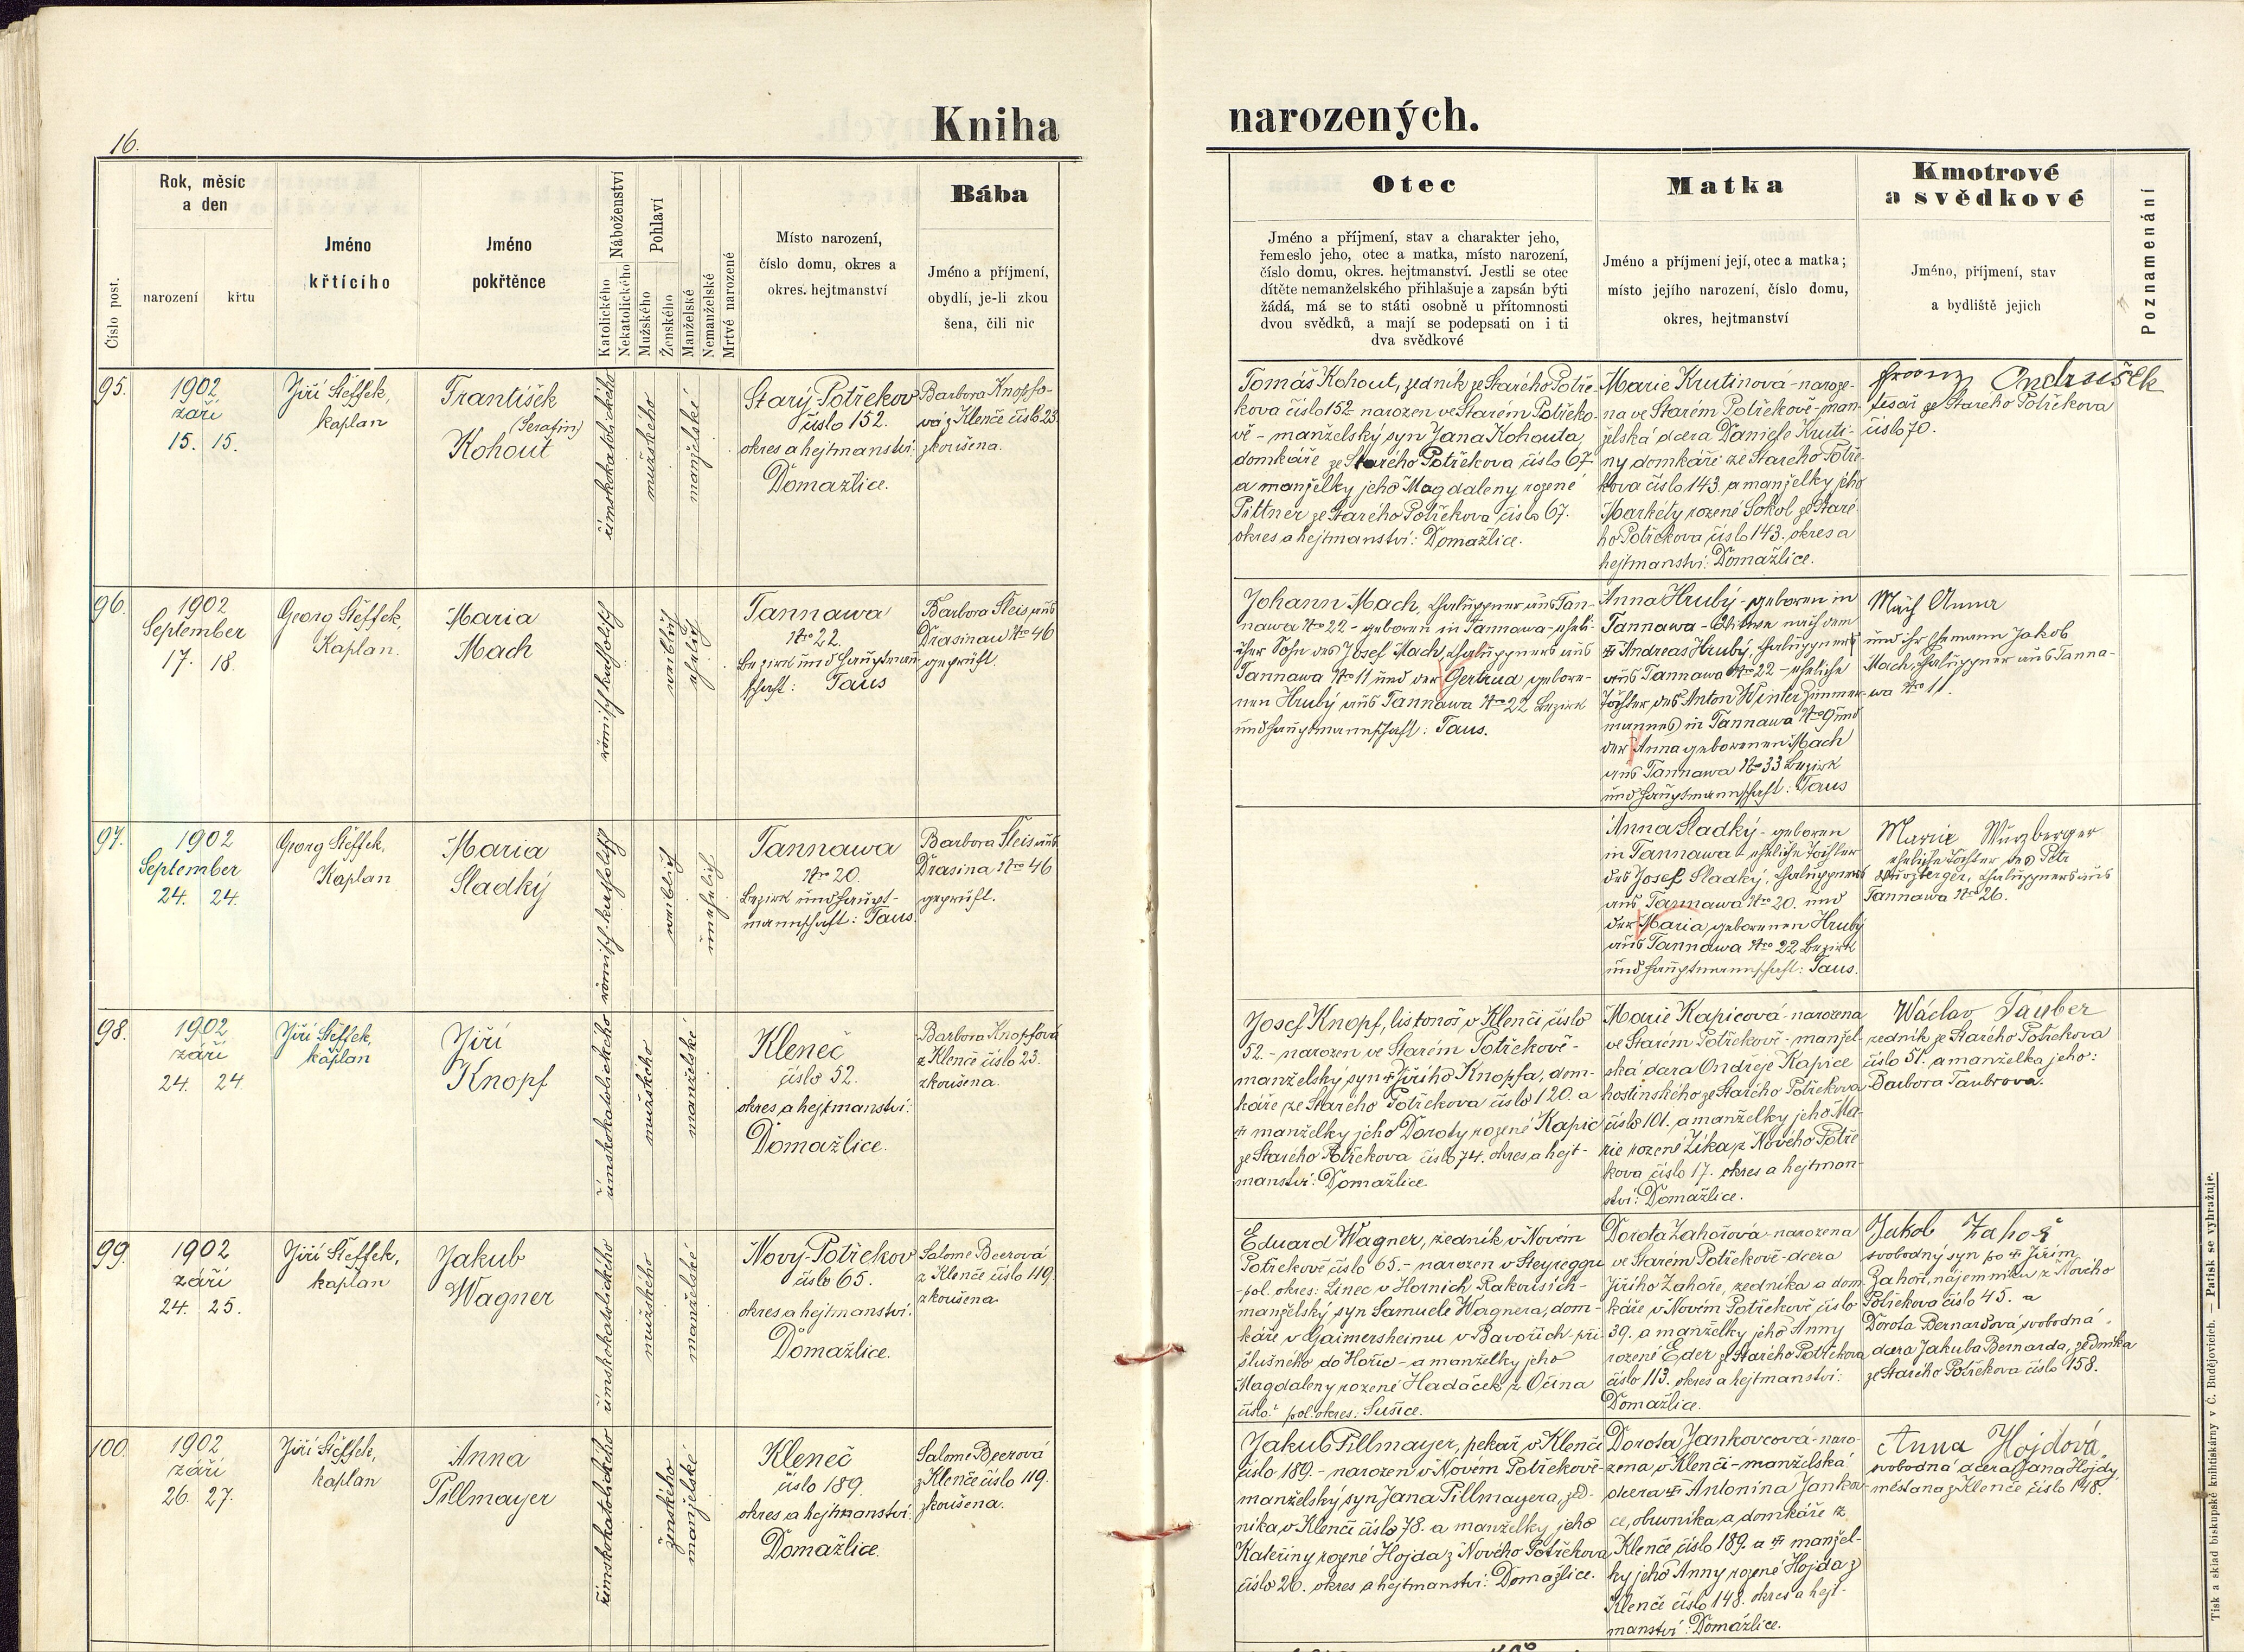 16.
Kniha
narozených.
Číslo post.
Rok, měsíc
a den
narození
křtu
Jméno
křtícího
Jméno
pokřtěnce
Náboženství
Katolického
Nekatolického
Pohlaví
Mužského
Ženského
Manželské
Nemanželské
Mrtvé narozené
Místo narození,
číslo domu, okres a
okres. hejtmanství
Bába
Jméno a příjmení,
obydlí, je-li zkou
šena, čili nic
Otec
Jméno a příjmení, stav a charakter jeho,
řemeslo jeho, otec a matka, místo narození,
číslo domu, okres. hejtmanství. Jestli se otec
dítěte nemanželského přihlašuje a zapsán býti
žádá, má se to státi osobně u přítomnosti
dvou svědků, a mají se podepsati on i ti
dva svědkové
Matka
Jméno a příjmení její, otec a matka;
místo jejího narození, číslo domu,
okres, hejtmanství
Kmotrové
a svědkové
Jméno, příjmení, stav
a bydliště jejich
Poznamenání
95.
1902
září
15. 15.
Jiří Steffek,
kaplan
František
(Serafin)
Kohout
římskokatolického
mužského
manželské
Starý-Potřekov
číslo 152.
okres a hejtmanství:
Domažlice.
Barbora Knopfo-
vá z Klenče číslo 23.
zkoušena.
Tomáš Kohout, zedník ze Starého Potře-
kova číslo 152 narozen ve Starém Potřeko-
vě - manželský syn Jana Kohouta,
domkáře ze Starého Potřekova číslo 67
a manželky jeho Magdaleny rozené
Pittner ze Starého Potřekova číslo 67.
okres a hejtmanství: Domažlice.
Marie Krutinová - naroze-
na ve Starém Potřekově - man-
želská dcera Daniele Kruti-
ny domkáře ze Starého Potře-
kova číslo 143. a manželky jeho
Markéty rozené Sokol ze Staré-
ho Potřekova číslo 143. okres a
hejtmanství: Domažlice.
Franz Ondraišek
tesař ze Starého Potřekova
číslo 70.
96.
1902
September
17. 18.
Georg Steffek,
Kaplan.
Maria
Mach
römisch katholisch
weiblich
ehelich
Tannawa
Nro 22.
Bezirk und Hauptmann-
schaft: Taus
Barbora Sleis aus
Drasinau Nro 46
geprüft.
Johann Mach, Chalupner aus Tan-
nawa Nro 22 - geboren in Tannawa - eheli-
cher Sohn des Josef Mach, Chaluppners aus
Tannawa Nro 11 und der Gertrud gebore-
nen Hrubý aus Tannawa Nro 22 Bezirk
und Hauptmannschaft: Taus.
Anna Hrubý - geboren in
Tannawa - Witwe nach dem
Andreas Hrubý, Chaluppners
aus Tannawa Nro 22 - eheliche
Tochter des Anton Winter Zimmer-
mannes in Tannawa Nro 9 und
der Anna geborenen Mach
aus Tannawa Nro 33 Bezirk
und Hauptmannschaft: Taus
Mach Anna
und ihr Ehemann Jakob
Mach, Chaluppner aus Tanna-
wa Nro 11.
97.
1902
September
24. 24.
Georg Steffek,
Kaplan
Maria
Sladký
römisch-katholisch
weiblich
unehelich
Tannawa
Nro 20.
Bezirk und Haupt-
mannschaft: Taus.
Barbora Sleis aus
Drasina Nro 46
geprüft.
Anna Sladký - geboren
in Tannawa - eheliche Tochter
des Josef Sladký, Chaluppners
aus Tannawa Nro 20. und
der Maria, geborenen Hrubý
aus Tannawa Nro 22 Bezirk
und Hauptmannschaft: Taus.
Marie Würzberger
eheliche Tochter des Petr
Würzberger, Chaluppners aus
Tannawa Nro 26.
98.
1902
září
24. 24
Jiří Steffek,
kaplan
Jiří
Knopf
římskokatolického
mužského
manželské
Kleneč
číslo 52.
okres a hejtmanství:
Domažlice.
Barbora Knopfová
z Klenče číslo 23.
zkoušena.
Josef Knopf, listonoš v Klenči číslo
52. - narozen ve Starém Potřekově -
manželský syn † Jiřího Knopfa, dom-
káře ze Starého Potřekova číslo 120. a
† manželky jeho Doroty rozené Kapic
ze Starého Potřekova číslo 74. okres a hejt-
manství: Domažlice.
Marie Kapicová - narozena
ve Starém Potřekově - manžel-
ská dcera Ondřeje Kapice
hostinského ze Starého Potřekova
číslo 101. a manželky jeho Ma-
rie rozené Zika z Nového Potře-
kova číslo 17. okres a hejtman-
ství: Domažlice.
Wáclav Täuber
zedník ze Starého Potřekova
číslo 51. a manželka jeho:
Barbora Taubrova.
99.
1902
září
24. 25.
Jiří Steffek,
kaplan
Jakub
Wagner
římskokatolického
mužského
manželské
Nový-Potřekov
číslo 65.
okres a hejtmanství:
Domažlice.
Salome Beerová
z Klenče číslo 119.
zkoušena.
Eduard Wagner, zedník v Novém
Potřekově číslo 65. - narozen v Steyreggu
- pol. okres: Linec v Horních Rakousích -
manželský syn Samuele Wagnera, dom-
káře v Gaimersheimu v Bavořích při-
slušného do Hořic - a manželky jeho
Magdaleny rozené Hadáček z Očina
číslo: pol. okres: Sušice.
Dorota Zahořová - narozena
ve Starém Potřekově - dcera
Jiřího Zahoře, zedníka a dom-
káře v Novém Potřekově číslo
39. a manželky jeho Anny
rozené Eder ze Starého Potřekova
číslo 113. okres a hejtmanství:
Domažlice.
Jakob Zahoř
svobodný syn po † Jiřím
Zahoři, nájemníku z Nového
Potřekova číslo 45. a
Dorota Bernardová, svobodná
dcera Jakuba Bernarda, zedníka
ze Starého Potřekova číslo 158.
100.
1902
září
26. 27.
Jiří Steffek,
kaplan
Anna
Pillmayer
římskokatolického
ženského
manželské
Kleneč
číslo 189.
okres a hejtmanství:
Domažlice.
Salome Beerová
z Klenče číslo 119.
zkoušena.
Jakub Pillmayer, pekař v Klenči
číslo 189. - narozen v Novém Potřekově -
manželský syn Jana Pillmayera, zed-
níka v Klenči číslo 78. a manželky jeho
Kateřiny rozené Hojda z Nového Potřekova
číslo 26. okres a hejtmanství: Domažlice.
Dorota Jankovcová - naro-
zena v Klenči - manželská
dcera † Antonína Jankov-
ce, obuvníka, a domkáře z
Klenče číslo 189. a † manžel-
ky jeho Anny rozené Hojda z
Klenče číslo 148. okres a hejt-
manství: Domažlice.
Anna Hojdová,
svobodná dcera Jana Hojdy,
měšťana z Klenče číslo 148.
Tisk a sklad biskupské knihtiskárny v Č. Budějovicích. — Patisk se vyhražuje.